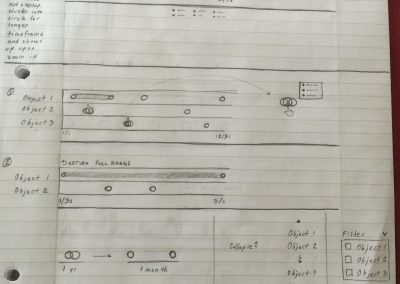 not overlap
cluster into
circle for
longer
timeframe
and shows
up upon
zoom in
①
Object 1
Object 2
Object 3
1/1
12/31
②
RETURN FULL RANGE
Object 1
Object 2
3/1
1 yr
1 month
Collapse?
Object 1
Object 2
Filter v
Object 1
Object 2
Object 3